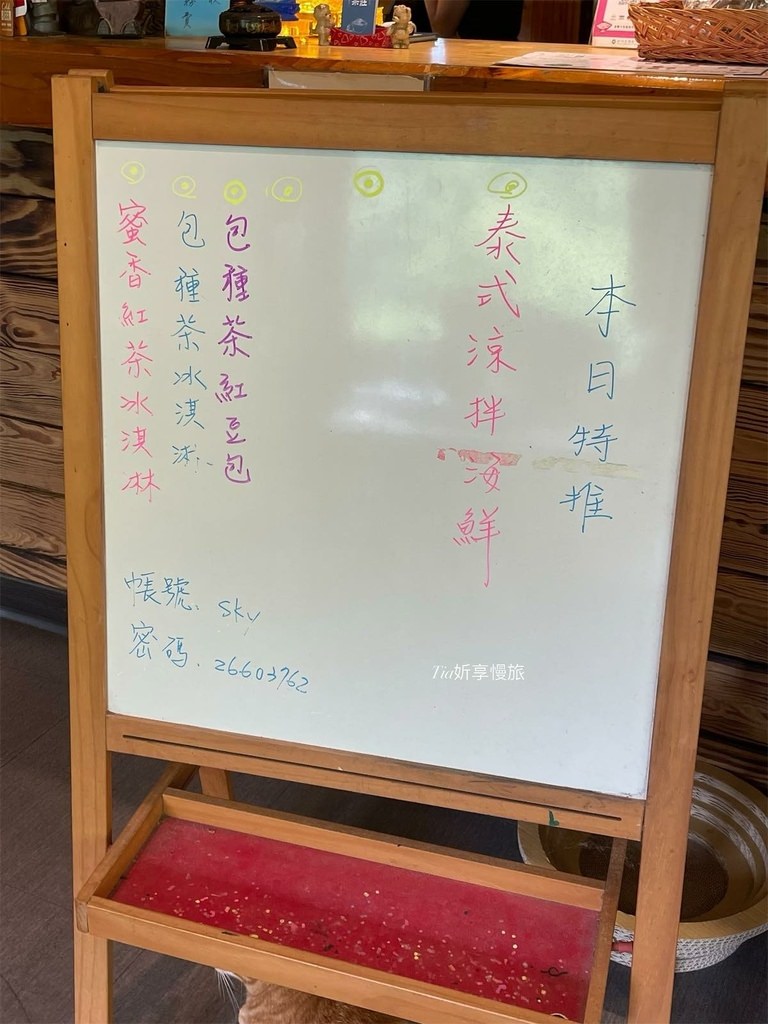 本日特推
泰式涼拌海鮮
包種茶紅豆包
包種茶冰淇淋
蜜香紅茶冰淇淋
帳號. sky
密碼. 26603762
Tia妡享慢旅